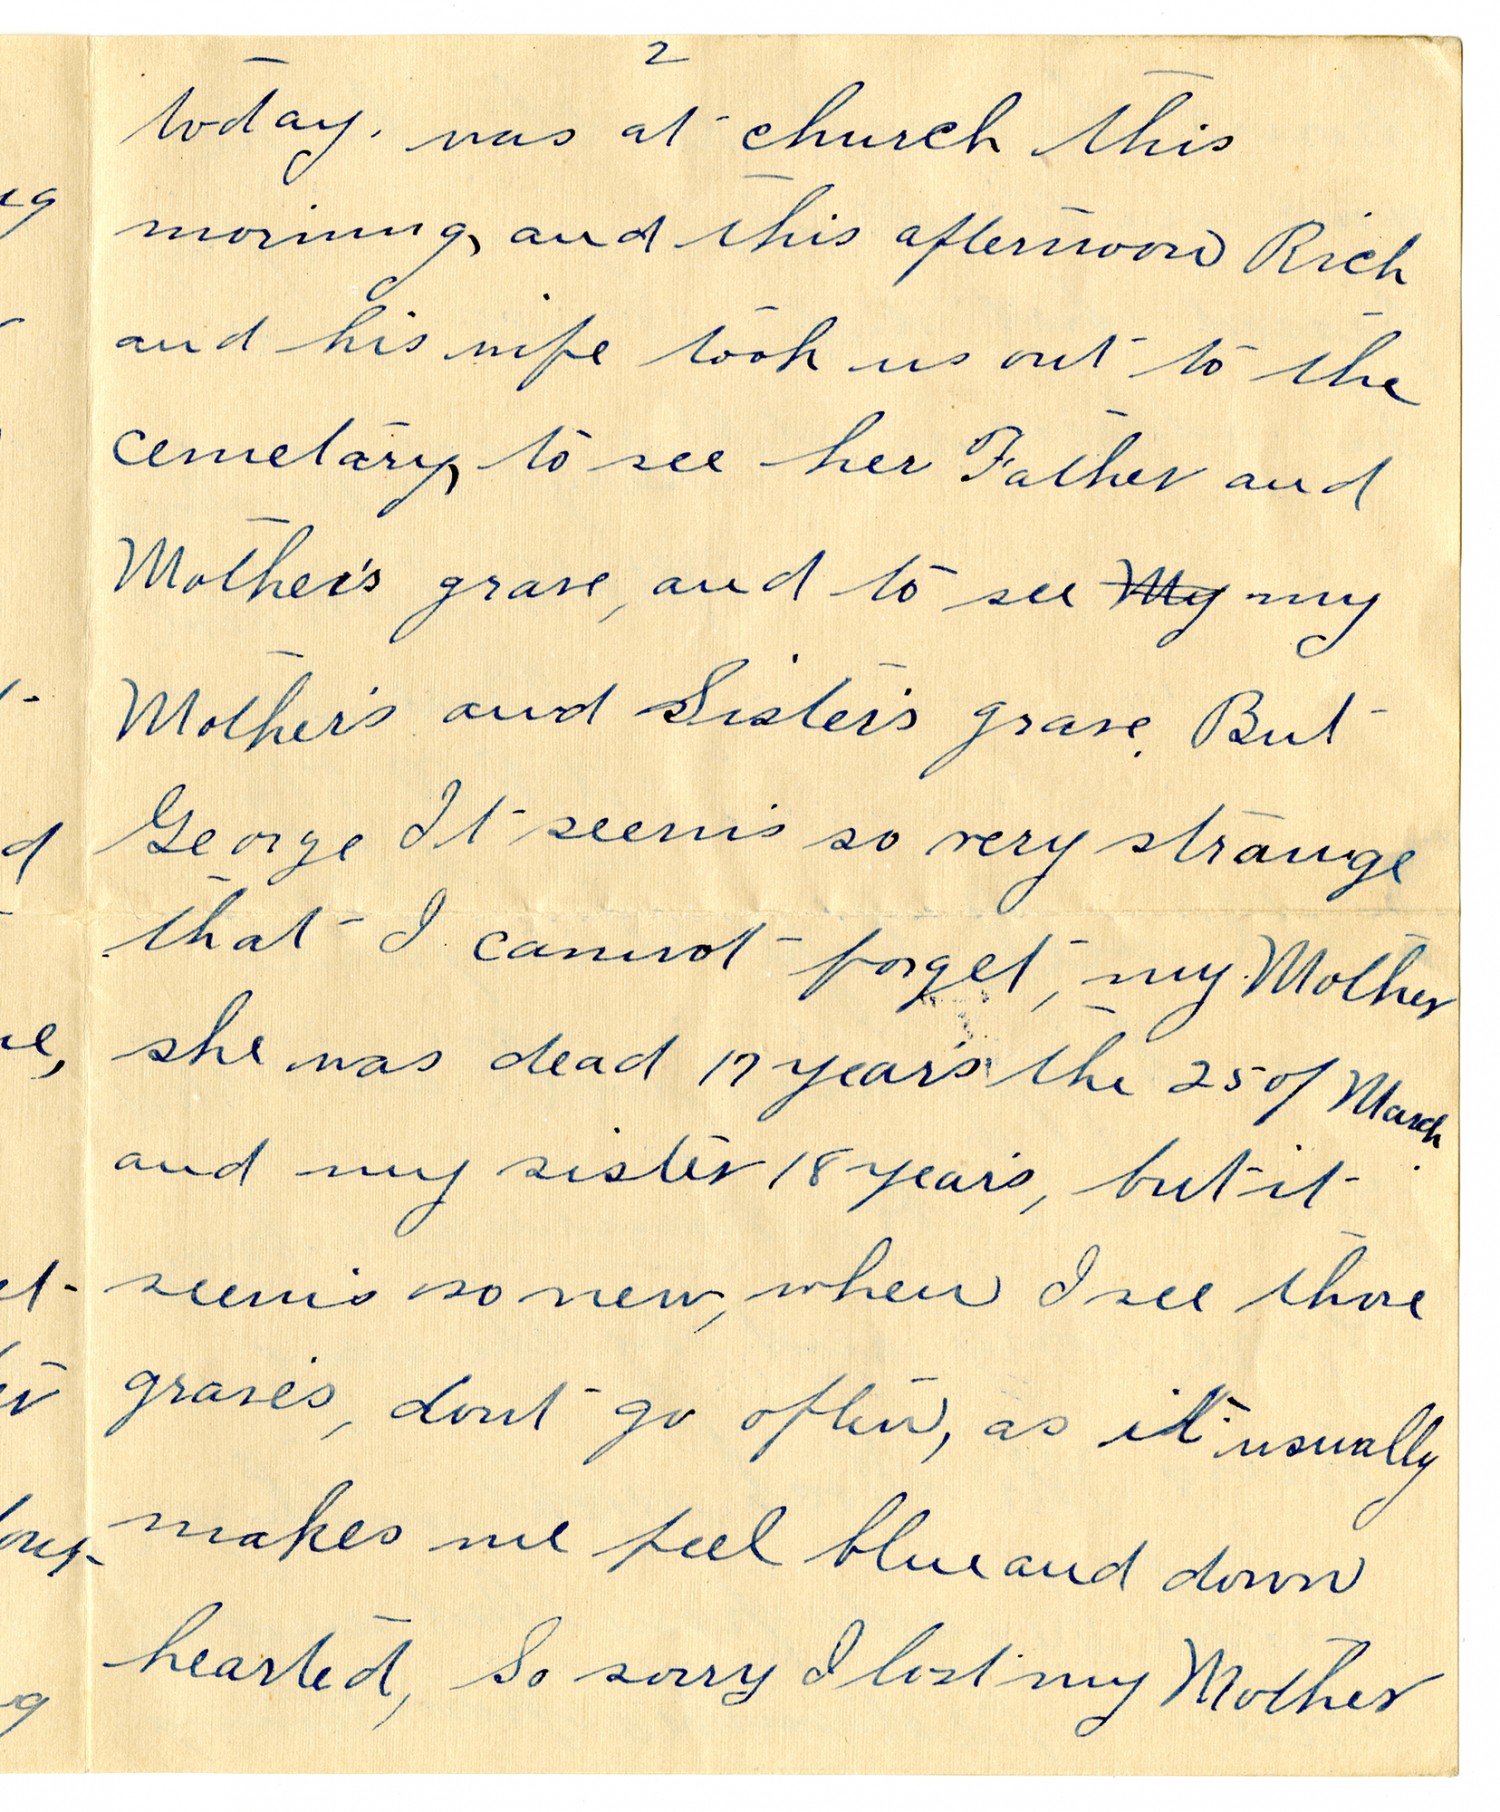 2
today. was at church this
morning, and this afternoon Rich
and his wife took us out to the
cemetary, to see her Father and
Mother's grave, and to see My my
Mother's and Sister's grave. But
George It seems so very strange
that I cannot forget, my Mother
she was dead 17 years the 25 of March
and my sister 18 years, but it
seems so new, when I see those
graves, dont go often, as it usually
makes me feel blue and down
hearted, So sorry I lost my Mother